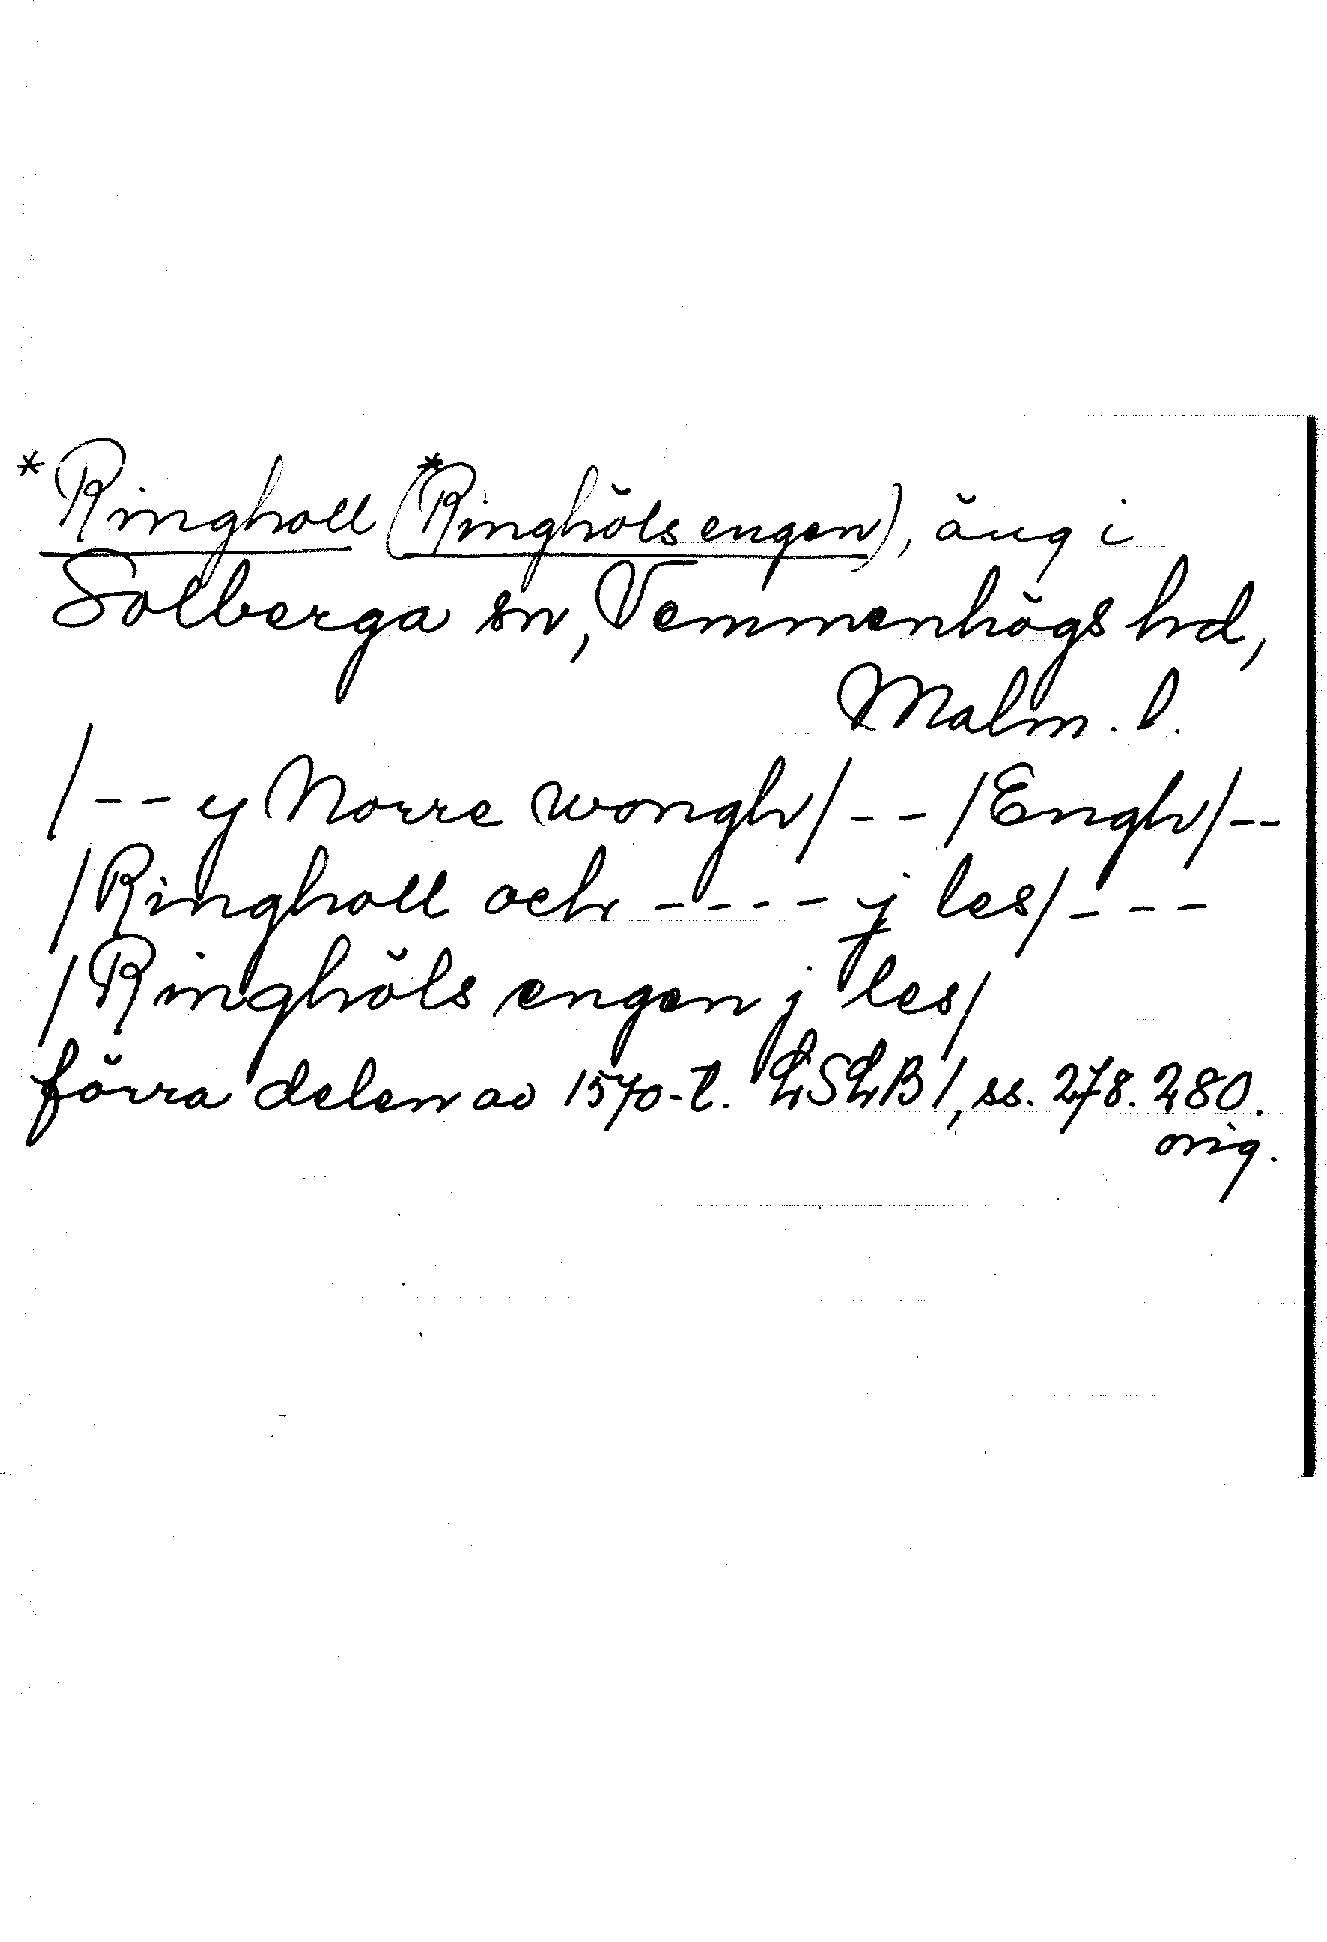 *Ringholl (*Ringhöls engen), äng i
Solberga sn, Vemmenhögs hd,
Malm. l.
/-- y Norre wongh/ -- /Engh/--
/Ringholl och ---- j les/ ---
/Ringhöls engen j les/
förra delen av 1570-t. LSLB 1, ss. 278. 280.
orig.